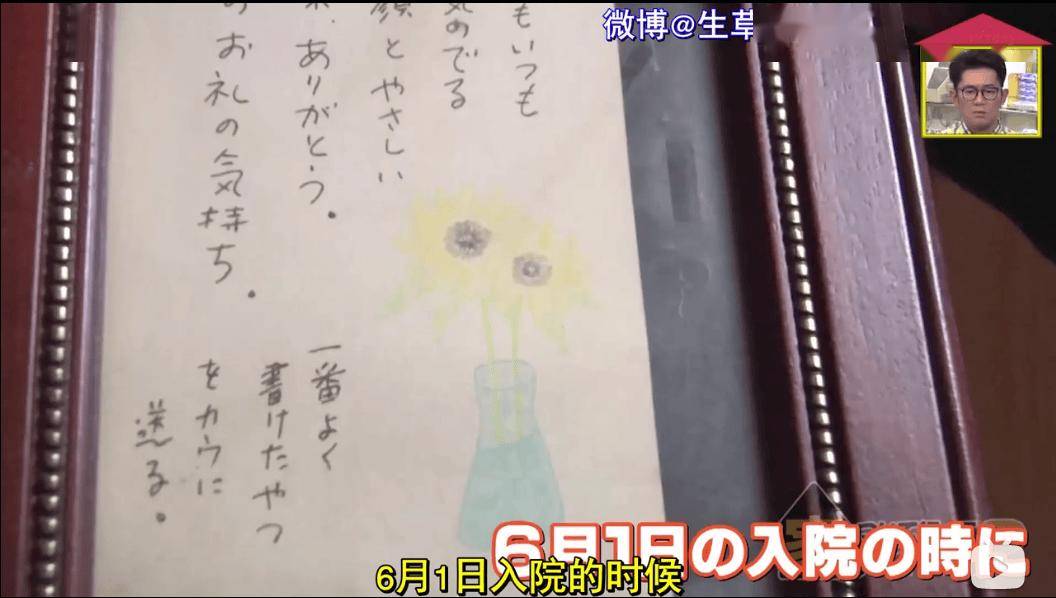 微博@生草
もいつも
気のでる
顔とやさしい
ありがとう。
お礼の気持ち。
一番よく
書けたやつ
をカウに
送る。
6月1日の入院の時に
6月1日入院的时候